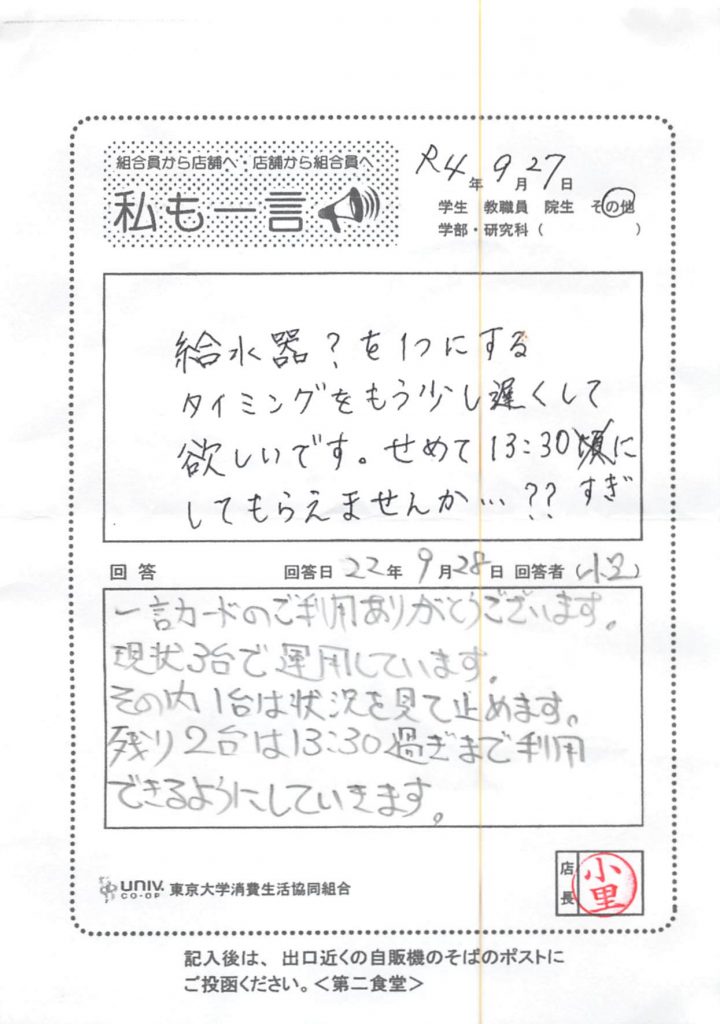 組合員から店舗へ 店舗から組合員へ
私も一言
R4年9月27日
学生 教職員 院生 その他
学部・研究科( )
給水器?を1つにする
タイミングをもう少し遅くして
欲しいです。せめて13:30頃に
すぎ
してもらえませんか…??
回答 回答日 22年 9月28日 回答者(小里)
一言カードのご利用ありがとうございます。
現状3台で運用しています。
その内1台は状況を見て止めます。
残り2台は13:30過ぎまで利用
できるようにしていきます。
店長 小里
UNIV. CO-OP 東京大学消費生活協同組合
記入後は、出口近くの自販機のそばのポストに
ご投函ください。<第二食堂>